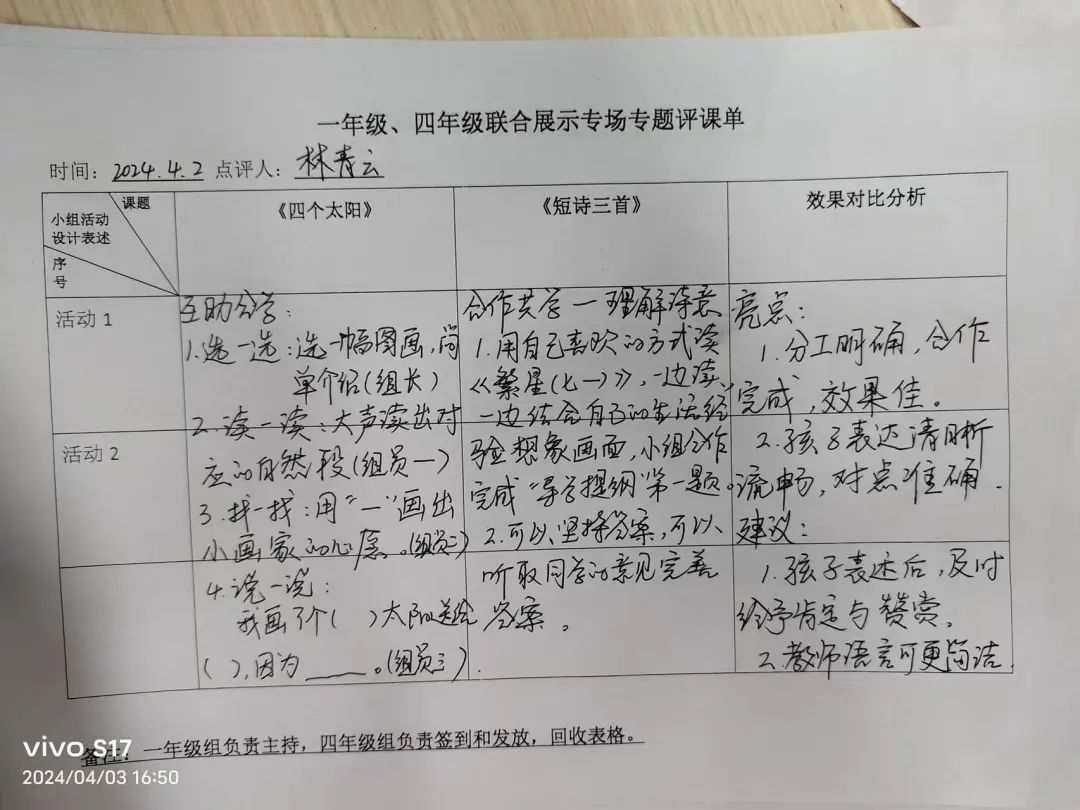 一年级、四年级联合展示专场专题评课单
时间：2024.4.2 点评人：林青云
课题
小组活动
设计表述
序
号
《四个太阳》
《短诗三首》
效果对比分析
活动1
活动2
互助合学：
1.选一选：选一幅图画，简
单介绍(组长)
2.读一读：大声读出对
应的自然段(组员一)
3.找一找：用“—”画出
小画家的心愿。(组员二)
4.说一说：
我画了个( )太阳送给
( )，因为____。(组员三)
合作共学—理解诗意
1.用自己喜欢的方式读
《繁星(七一)》，一边读，
一边结合自己的生活经
验想象画面，小组合作
完成“导学提纲”第一题。
2.可以坚持答案，可以
听取同学的意见完善
答案。
亮点：
1.分工明确，合作
完成，效果佳。
2.孩子表达清晰
流畅，对点准确.
建议：
1.孩子表述后，及时
给予肯定与赞赏.
2.教师语言可更简洁.
备注：一年级组负责主持，四年级组负责签到和发放，回收表格。
vivo S17
2024/04/03 16:50